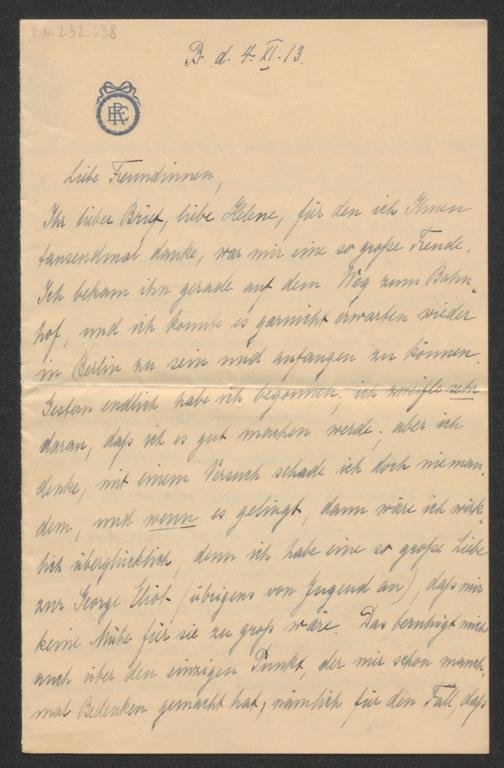 I.N. 232.638
B. d. 4. XI. 13.
Liebe Freundinnen,
Ihr lieber Brief, liebe Helene, für den ich Ihnen
tausendmal danke, war mir eine so große Freude.
Ich bekam ihn gerade auf dem Weg zum Bahn-
hof, und ich konnte es garnicht erwarten wieder
in Berlin zu sein und anfangen zu können.
Gestern endlich habe ich begonnen; ich zweifle sehr
daran, daß ich es gut machen werde; aber ich
denke, mit einem Versuch schade ich doch nieman-
dem, und wenn es gelingt, dann wäre ich wirk-
lich überglücklich, denn ich habe eine so große Liebe
zur George Eliot (übrigens von Jugend an), daß mir
keine Mühe für sie zu groß wäre. Das beruhigt mich
auch über den einzigen Punkt, der mir schon manch-
mal Bedenken gemacht hat, nämlich für den Fall, daß